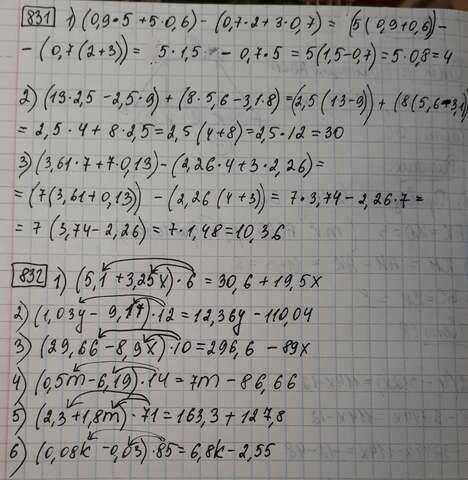 831 1) (0,9·5 + 5·0,6) - (0,7·2 + 3·0,7) = (5(0,9+0,6) -
- (0,7(2+3)) = 5·1,5 - 0,7·5 = 5(1,5-0,7) = 5·0,8 = 4
2) (13·2,5 - 2,5·9) + (8·5,6 - 3,1·8) = (2,5(13-9)) + (8(5,6-3,1)
= 2,5·4 + 8·2,5 = 2,5(4+8) = 2,5·12 = 30
3) (3,61·7 + 7·0,13) - (2,26·4 + 3·2,26) =
= (7(3,61+0,13)) - (2,26(4+3)) = 7·3,74 - 2,26·7 =
= 7(3,74 - 2,26) = 7·1,48 = 10,36
832 1) (5,1 + 3,25x)·6 = 30,6 + 19,5x
2) (1,03y - 9,17)·12 = 12,36y - 110,04
3) (29,66 - 8,9x)·10 = 296,6 - 89x
4) (0,5m - 6,19)·14 = 7m - 86,66
5) (2,3 + 1,8m)·71 = 163,3 + 127,8
6) (0,08k - 0,03)·85 = 6,8k - 2,55